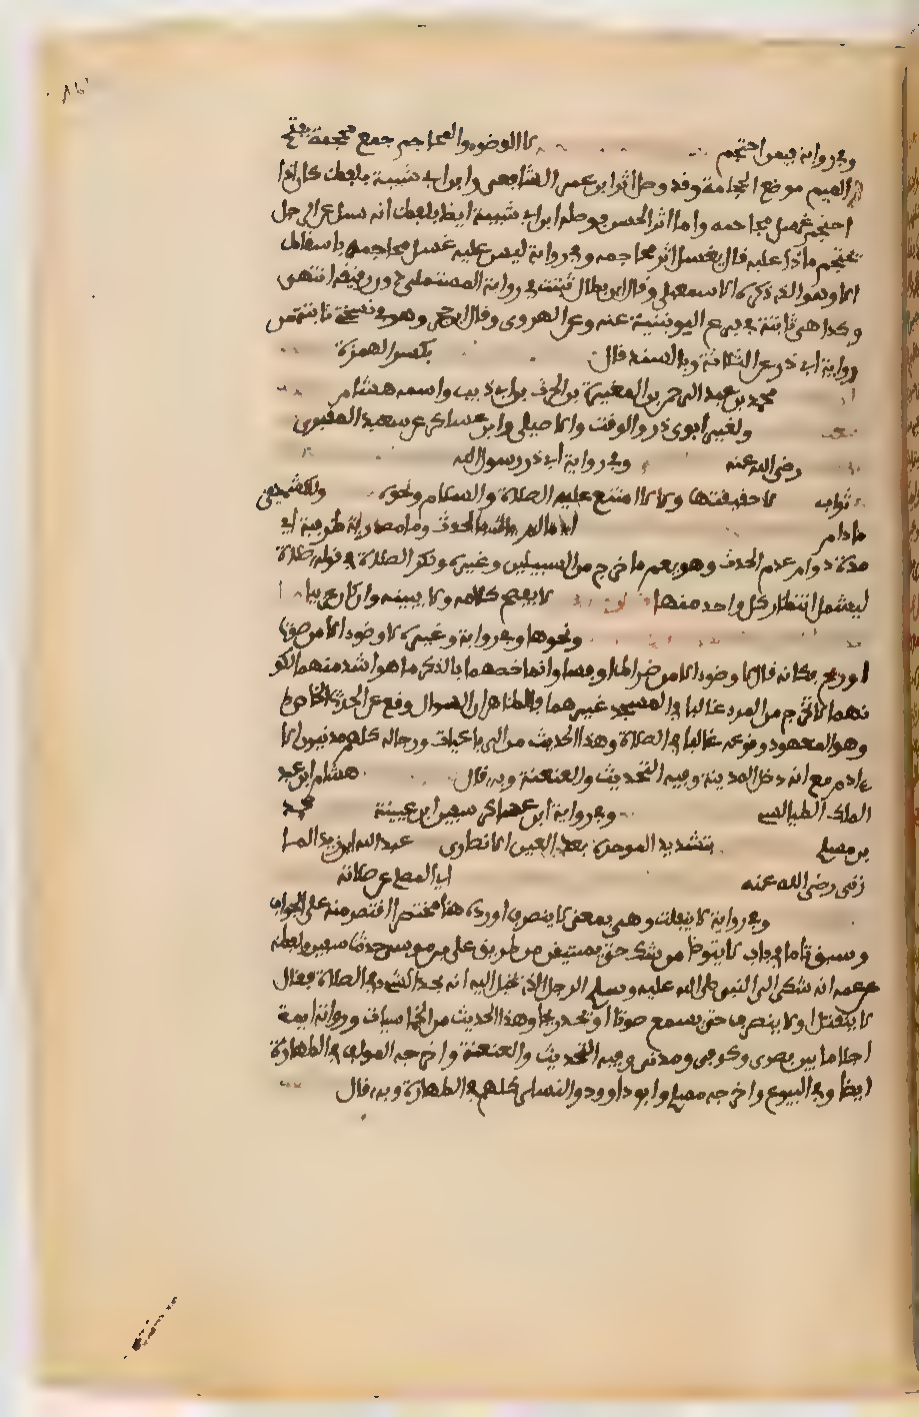 وفي رواية فيمن احتجم لا الوضوء والمحاجم جمع محجمة بفتح
الميم موضع الحجامة وقد وصل اثر ابن عمر الشافعي وابن ابي شيبة بلفظ كان اذا
احتجم غسل محاجمه واما اثر الحسن فوصله ابن ابي شيبة ايضا بلفظ انه سئل عن الرجل
يحتجم ماذا عليه قال يغسل اثر محاجمه وفي رواية ليس عليه غسل محاجمه باسقاط
الا وهو الذي ذكره الاسمعيلي وقال ابن بطال ثبتت في رواية المستملي دون رفيقه انتهى
وكذا هي ثابتة في فرع اليونينية عنه وعن الهروي وقال ابن حجر وهو في نسخة ثابتة من
رواية ابي ذر عن الثلاثة وبالسند قال بكسر الهمزة
محمد بن عبد الرحمن بن المغيرة بن الحرث بن ابي ذيب واسمه هشام
ولغير ابوي ذر والوقت والاصيلي وابن عساكر عن سعيد المقبري
رضي الله عنه وفي رواية ابي ذر رسول الله
ثواب لا حقيقتها والا لامتنع عليه الصلاة والسلام ونحوه وللكشميهني
ما دام الحدث وما مصدرية ظرفية اي
مدة دوام عدم الحدث وهو يعم ما خرج من السبيلين وغيره ونكر الصلاة في قوله في صلاة
ليشمل انتظار كل واحد منها لا يفصح كلامه ولا يبينه وان كان عربيا
ونحوها وفي رواية وغيره لا وضوء الا من صوت
او ريح فكانه قال لا وضوء الا من ضراط او فساء وانما خصهما بالذكر ما هو اشد منهما لكو
نهما لا يخرج من المرء غالبا في المسجد غيرهما فالظاهر ان السوال وقع عن الحدث الخاص
وهو المعهود وقوعه غالبا في الصلاة وهذا الحديث من الرباعيات ورجاله كلهم مدنيون الا
ءادم مع انه دخل المدينة وفيه التحديث والعنعنة وبه قال هشام ابن عبد
الملك الطيالسي وفي رواية ابن عساكر سفين ابن عيينة محمد
بن مسلم بتشديد الموحدة بعد العين الانصاري عبد الله ابن زيد الما
زني رضي الله عنه
وفي رواية لا ينفلت وهي بمعنى لا ينصرف اورده هنا مختصرا اقتصر منه على الجواب
وسبق تاما في باب لا يتوضا من شك حتى يستيقن من طريق علي حدثنا سفين ولفظه
عن عمه انه شكى الى النبي صلى الله عليه وسلم الرجل الذي يخيل اليه انه يجد الشيء في الصلاة فقال
لا ينفتل او لا ينصرف حتى يسمع صوتا او يجد ريحا وهذا الحديث من الخماسيات ورواته ايمة
اجلا ما بين بصري وكوفي ومدني وفيه التحديث والعنعنة واخرجه المولف في الطهارة
ايضا وفي البيوع واخرجه مسلم وابو داوود والنسائي كلهم في الطهارة وبه قال